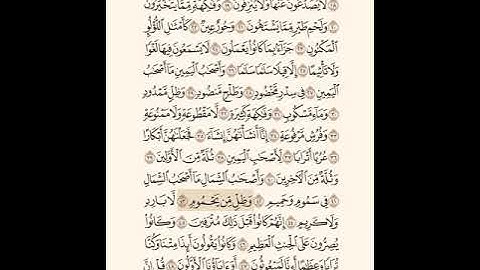 ١٨ لَّا يُصَدَّعُونَ عَنْهَا وَلَا يُنزِفُونَ ١٩ وَفَٰكِهَةٍ مِّمَّا يَتَخَيَّرُونَ
٢٠ وَلَحْمِ طَيْرٍ مِّمَّا يَشْتَهُونَ ٢١ وَحُورٌ عِينٌ ٢٢ كَأَمْثَٰلِ ٱللُّؤْلُوِٕ
ٱلْمَكْنُونِ ٢٣ جَزَآءًۢ بِمَا كَانُوا۟ يَعْمَلُونَ ٢٤ لَا يَسْمَعُونَ فِيهَا لَغْوًا
وَلَا تَأْثِيمًا ٢٥ إِلَّا قِيلًا سَلَٰمًا سَلَٰمًا ٢٦ وَأَصْحَٰبُ ٱلْيَمِينِ مَآ أَصْحَٰبُ
ٱلْيَمِينِ ٢٧ فِى سِدْرٍ مَّخْضُودٍ ٢٨ وَطَلْحٍ مَّنضُودٍ ٢٩ وَظِلٍّ مَّمْدُودٍ
٣٠ وَمَآءٍ مَّسْكُوبٍ ٣١ وَفَٰكِهَةٍ كَثِيرَةٍ ٣٢ لَّا مَقْطُوعَةٍ وَلَا مَمْنُوعَةٍ
٣٣ وَفُرُشٍ مَّرْفُوعَةٍ ٣٤ إِنَّآ أَنشَأْنَٰهُنَّ إِنشَآءً ٣٥ فَجَعَلْنَٰهُنَّ أَبْكَارًا
٣٦ عُرُبًا أَتْرَابًا ٣٧ لِّأَصْحَٰبِ ٱلْيَمِينِ ٣٨ ثُلَّةٌ مِّنَ ٱلْأَوَّلِينَ ٣٩
وَثُلَّةٌ مِّنَ ٱلْءَاخِرِينَ ٤٠ وَأَصْحَٰبُ ٱلشِّمَالِ مَآ أَصْحَٰبُ ٱلشِّمَالِ
٤١ فِى سَمُومٍ وَحَمِيمٍ ٤٢ وَظِلٍّ مِّن يَحْمُومٍ ٤٣ لَّا بَارِدٍ
وَلَا كَرِيمٍ ٤٤ إِنَّهُمْ كَانُوا۟ قَبْلَ ذَٰلِكَ مُتْرَفِينَ ٤٥ وَكَانُوا۟
يُصِرُّونَ عَلَى ٱلْحِنثِ ٱلْعَظِيمِ ٤٦ وَكَانُوا۟ يَقُولُونَ أَئِذَا مِتْنَا وَكُنَّا
تُرَابًا وَعِظَٰمًا أَءِنَّا لَمَبْعُوثُونَ ٤٧ أَوَءَابَآؤُنَا ٱلْأَوَّلُونَ ٤٨ قُلْ إِنَّ